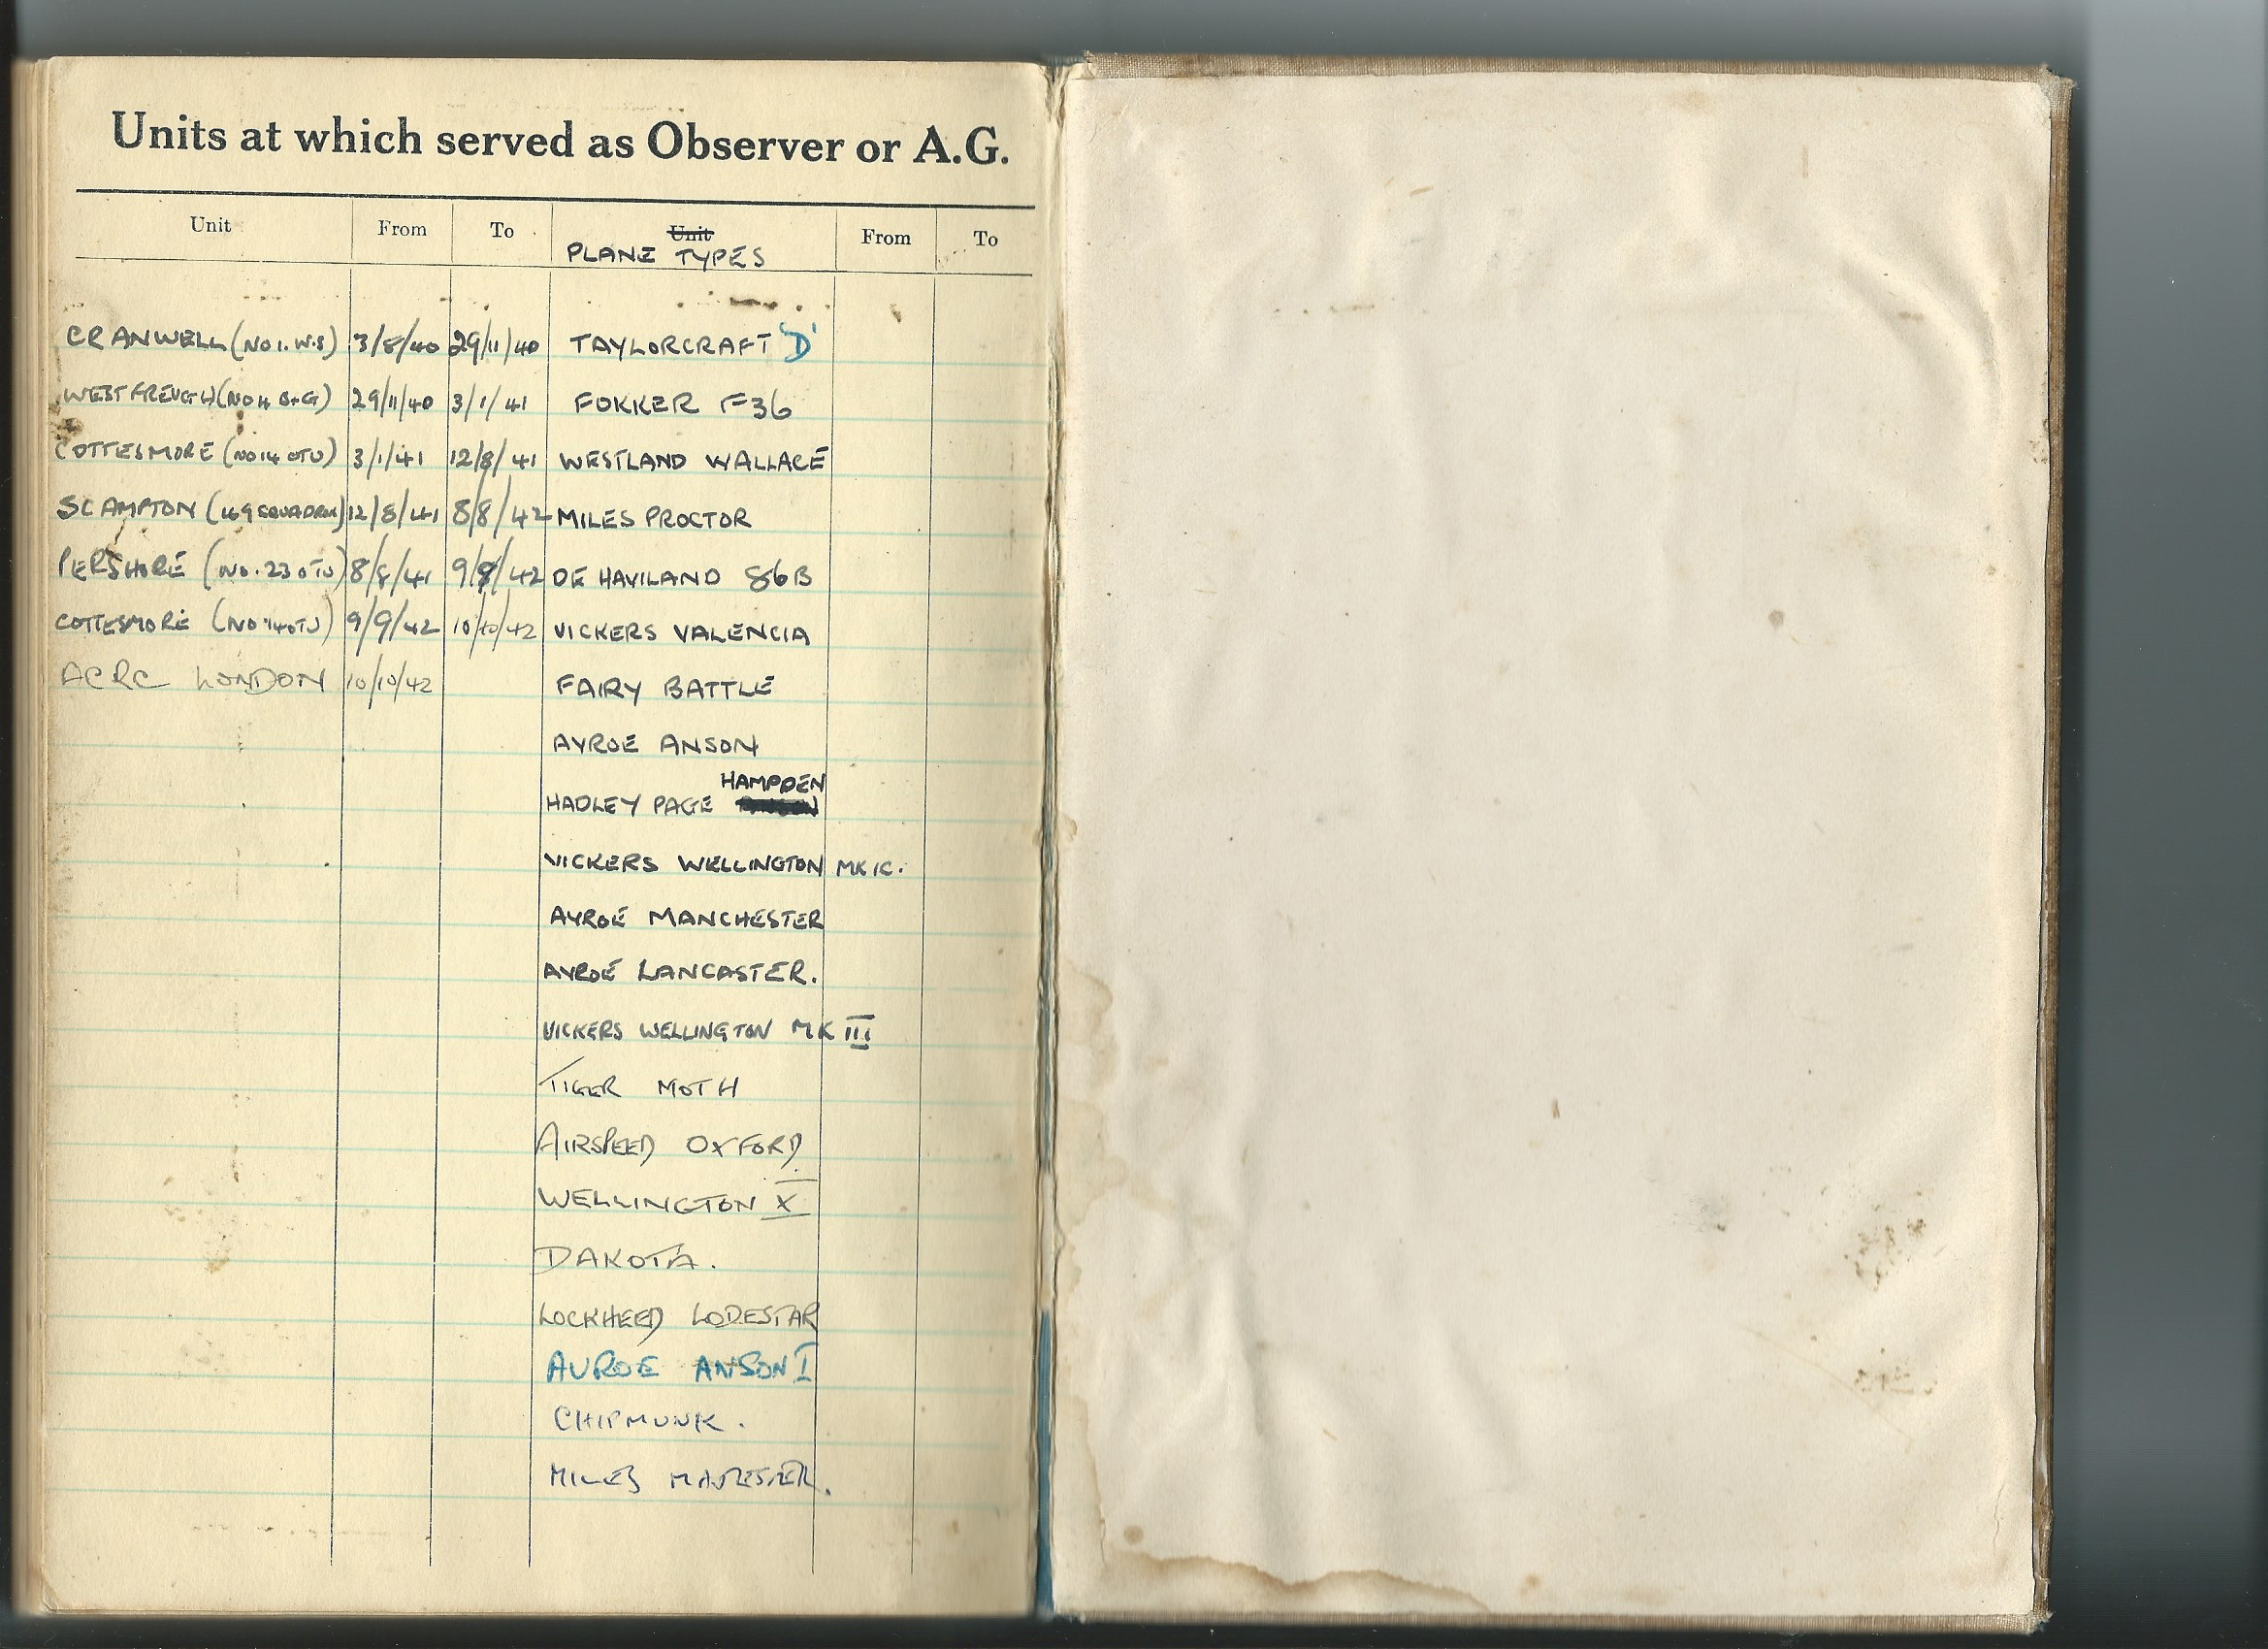 Units at which served as Observer or A.G.
Unit From To Unit From To
PLANE TYPES
CRANWELL (NO 1. W.S) 3/8/40 29/11/40 TAYLORCRAFT 'D'
WEST FREUGH (NO 4 B+G) 29/11/40 3/1/41 FOKKER F36
COTTESMORE (NO 14 OTU) 3/1/41 12/8/41 WESTLAND WALLACE
SCAMPTON (49 SQUADRON) 12/8/41 8/8/42 MILES PROCTOR
PERSHORE (NO. 23 OTU) 8/8/41 9/9/42 DE HAVILAND 86B
COTTESMORE (NO 14 OTU) 9/9/42 10/10/42 VICKERS VALENCIA
ACRC LONDON 10/10/42 FAIRY BATTLE
AVROE ANSON
HAMPDEN
HADLEY PAGE
VICKERS WELLINGTON MK IC.
AVROE MANCHESTER
AVROE LANCASTER.
VICKERS WELLINGTON MK III
TIGER MOTH
AIRSPEED OXFORD
WELLINGTON X
DAKOTA.
LOCKHEED LODESTAR
AVROE ANSON I
CHIPMUNK.
MILES